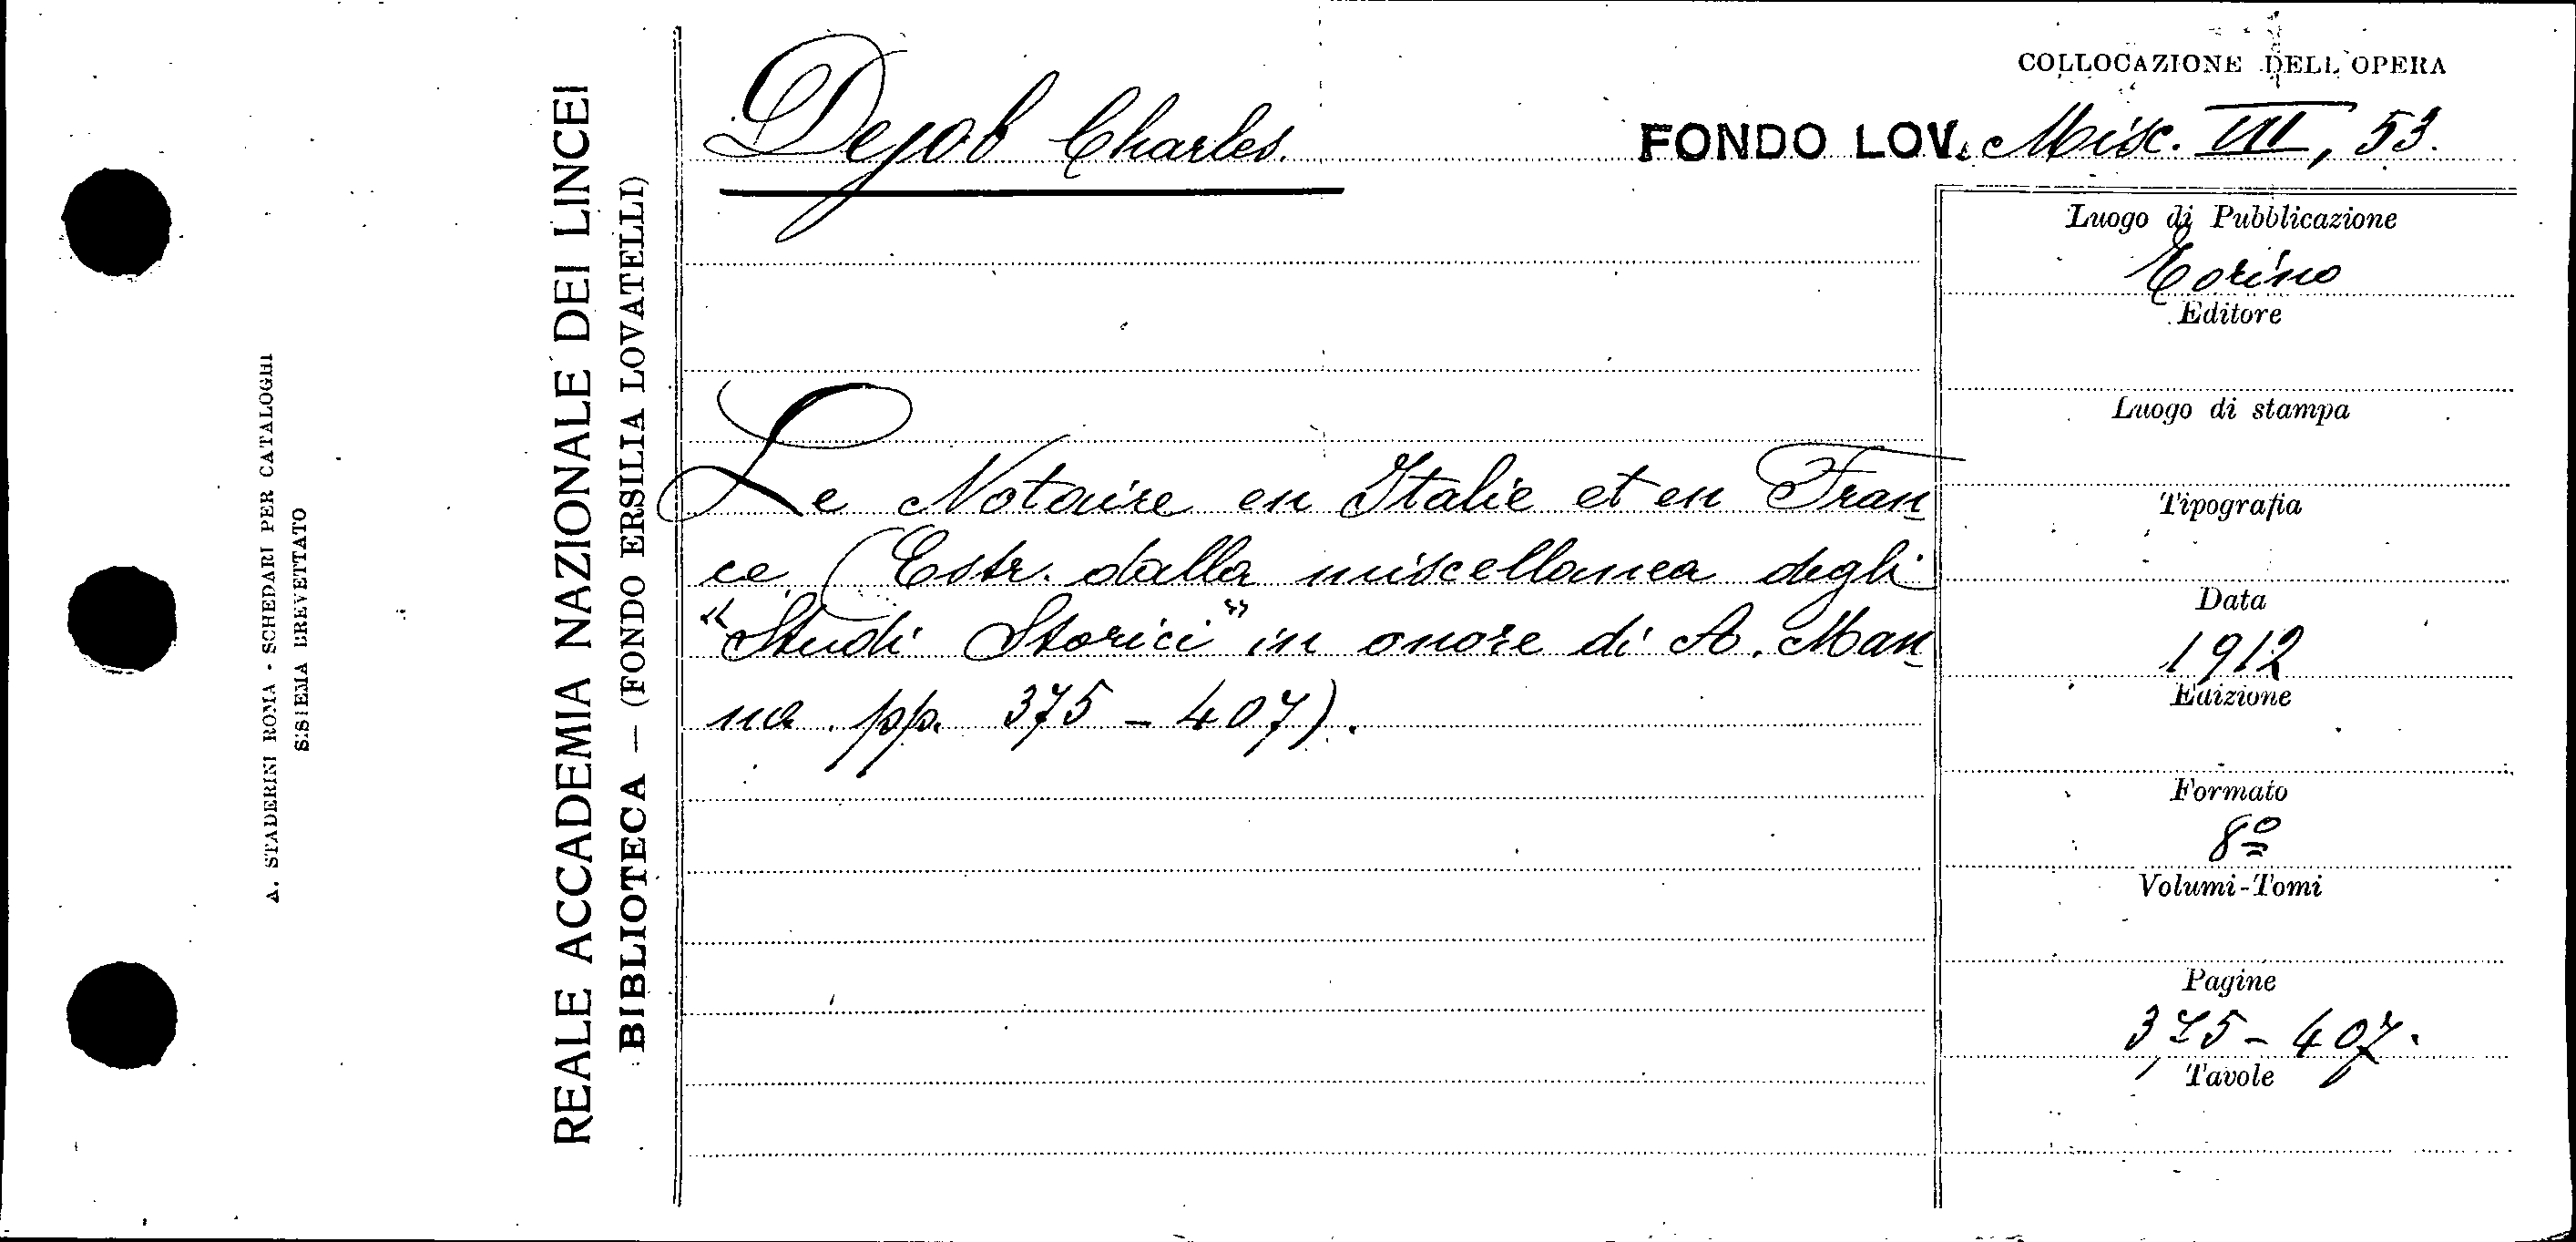 COLLOCAZIONE DELL'OPERA
Dejob Charles.
FONDO LOV. Misc. VIII, 53.
Le Notaire en Italie et en Fran-
ce (Estr. dalla miscellanea degli
"Studi Storici" in onore di A. Man-
na pp. 375-407).
Luogo di Pubblicazione
Torino
Editore
Luogo di stampa
Tipografia
Data
1912
Edizione
Formato
8º
Volumi-Tomi
Pagine
375-407.
Tavole
REALE ACCADEMIA NAZIONALE DEI LINCEI
BIBLIOTECA — (FONDO ERSILIA LOVATELLI)
A. STADERINI ROMA - SCHEDARI PER CATALOGHI
SISTEMA BREVETTATO